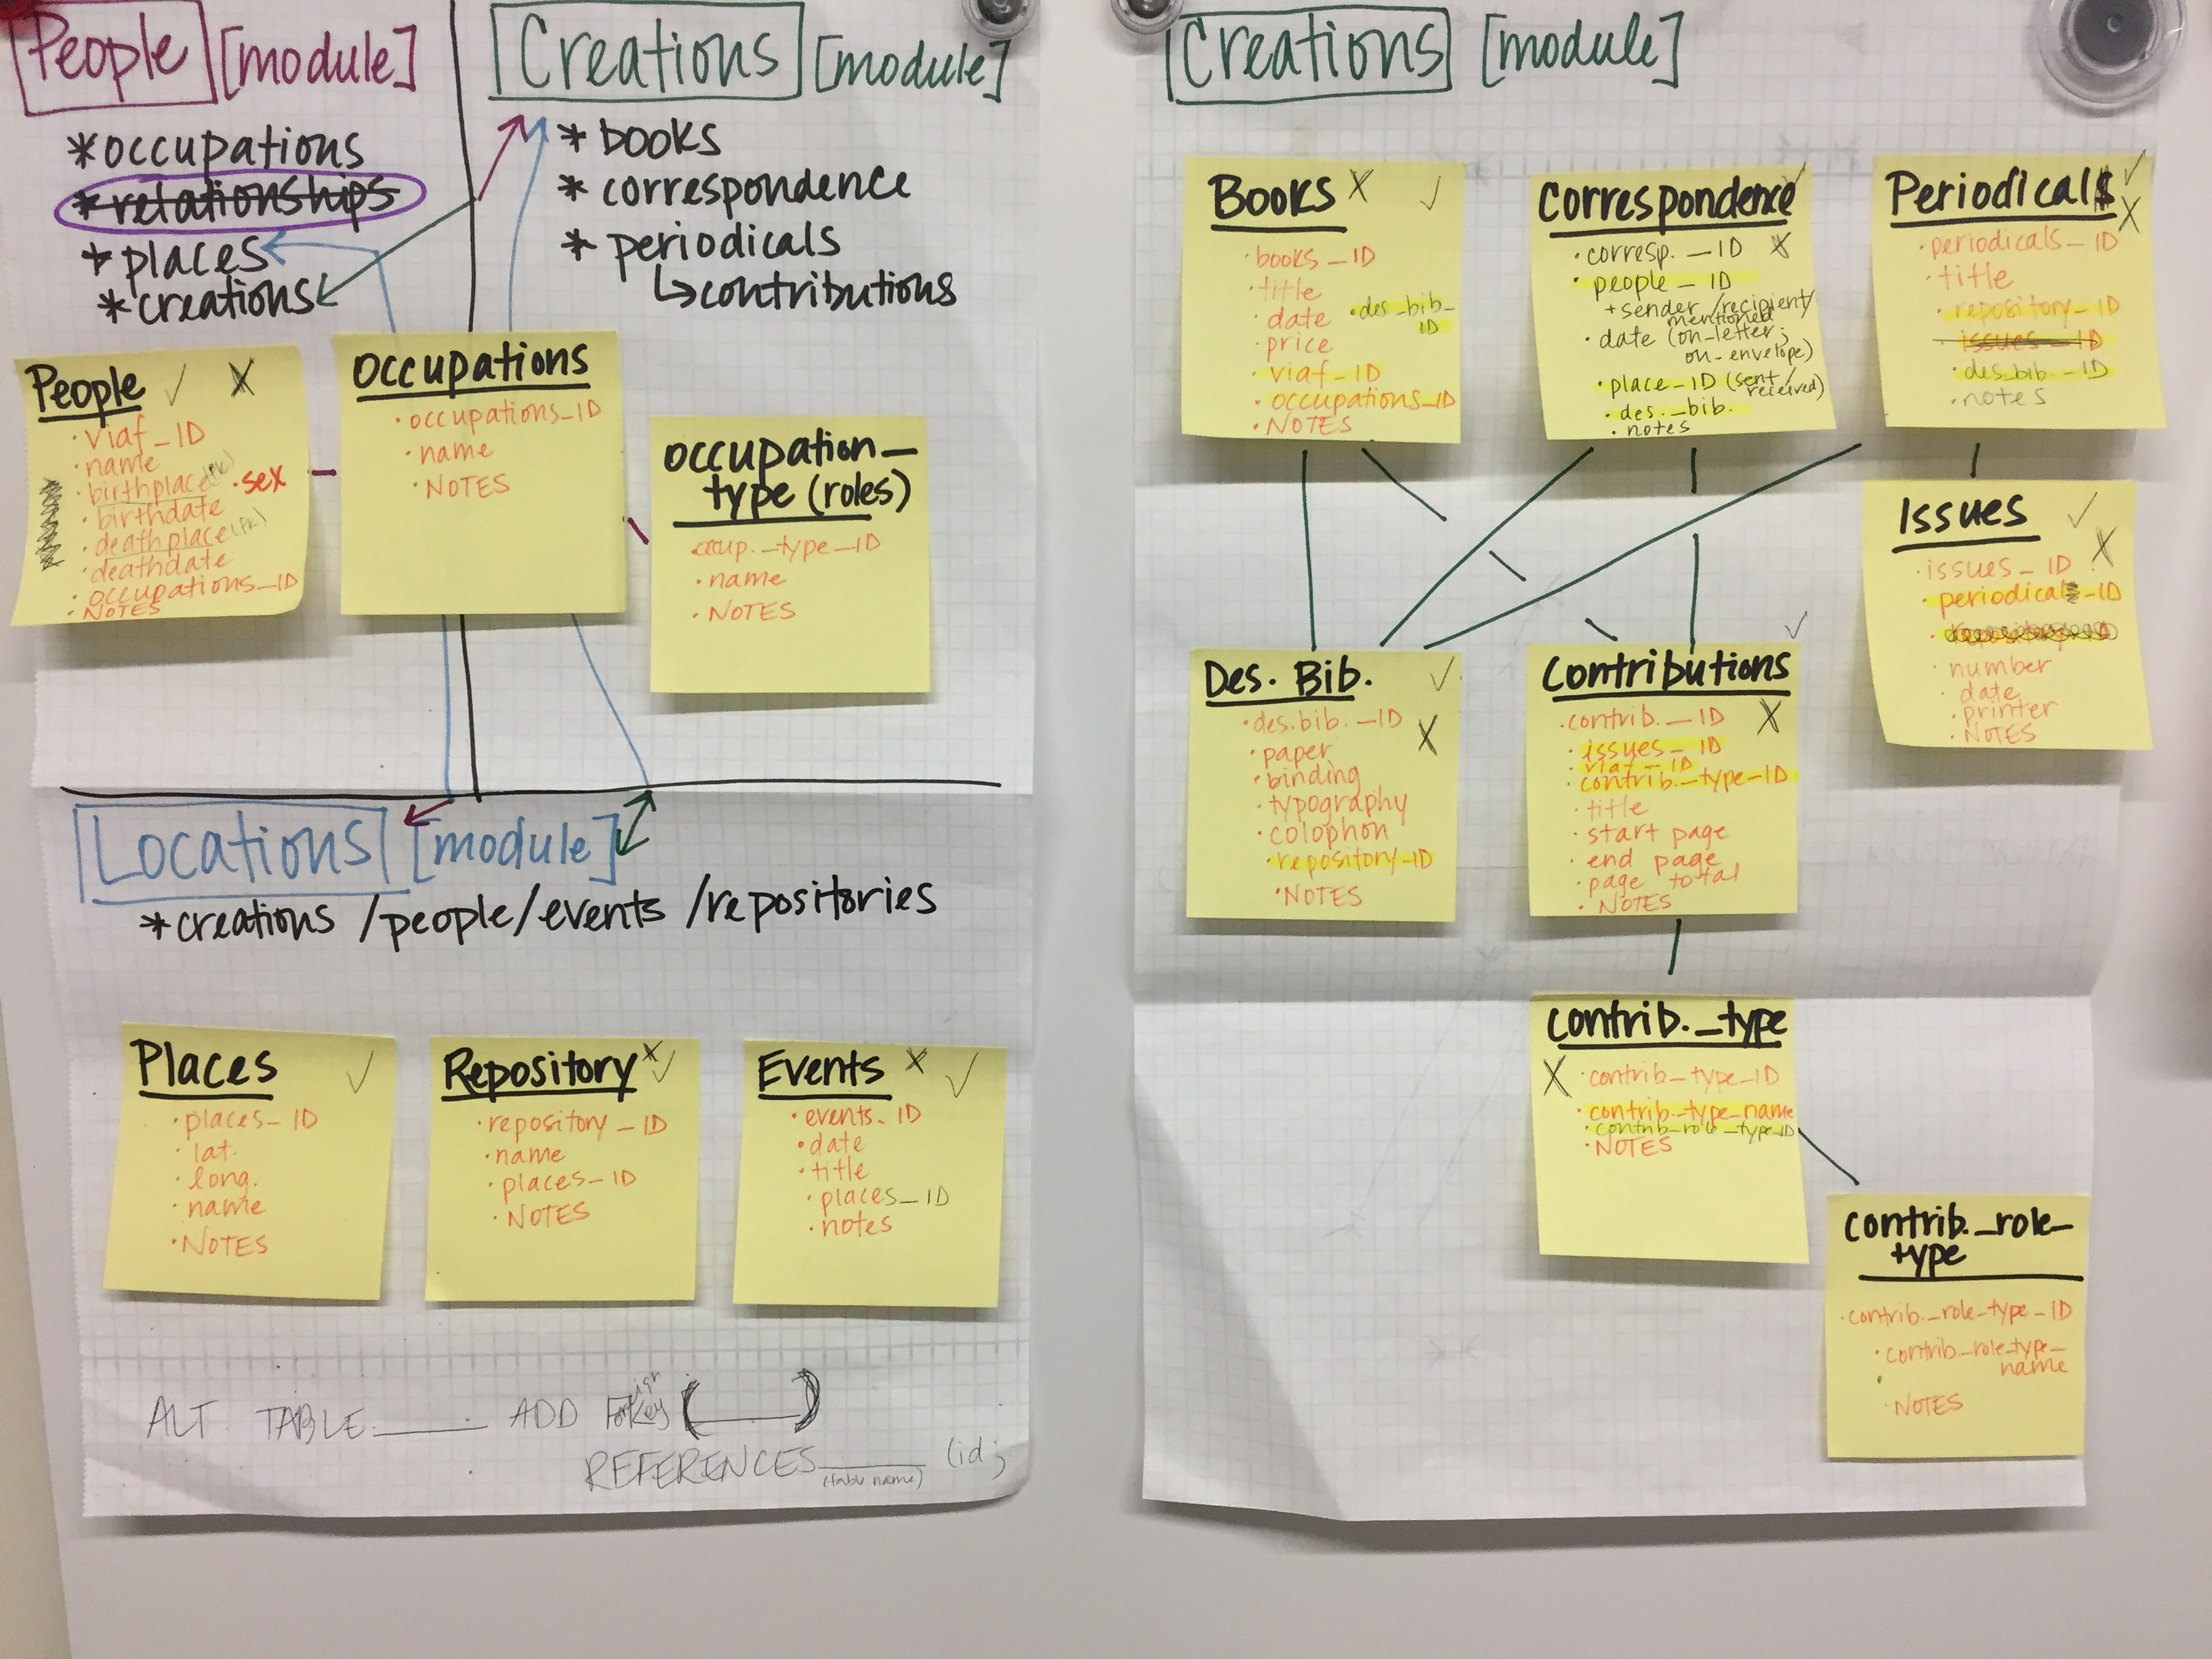 People [module]
*occupations
*relationships
*places
*creations
Creations [module]
* books
* correspondence
* periodicals
↳contributions
People ✓ X
• viaf_ID
• name
• birthplace (FK)
• sex
• birthdate
• deathplace (FK)
• deathdate
• occupations_ID
• NOTES
Occupations
• occupations_ID
• name
• NOTES
occupation_
type (roles)
• occup._type_ID
• name
• NOTES
Locations [module]
*creations /people/events /repositories
Places ✓
• places_ID
• lat.
• long.
• name
• NOTES
Repository X ✓
• repository_ID
• name
• places_ID
• NOTES
Events X ✓
• events_ID
• date
• title
• places_ID
• notes
ALT. TABLE ______ ADD Foreign Key (______)
REFERENCES ______ (id;
(table name)
Creations [module]
Books X ✓
• books_ID
• title
• date
• des_bib_
ID
• price
• viaf_ID
• occupations_ID
• NOTES
Correspondence ✓
• corresp._ID X
• people_ID
+ sender/recipient/
mentioned
• date (on_letter;
on_envelope)
• place_ID (sent/
received)
• des._bib.
• notes
Periodicals ✓
X
• periodicals_ID
• title
• repository_ID
• issues_ID
• des_bib._ID
• notes
Issues ✓
X
• issues_ID
• periodical_ID
• number
• date
• printer
• NOTES
Des. Bib. ✓
• des.bib._ID
X
• paper
• binding
• typography
• colophon
• repository_ID
• NOTES
Contributions ✓
• contrib._ID X
• issues_ID
• viaf_ID
• contrib._type_ID
• title
• start page
• end page
• page total
• NOTES
contrib._type
X • contrib_type_ID
• contrib._type_name
• contrib_role_type_ID
• NOTES
contrib._role_
type
• contrib._role_type_ID
• contrib_role_type_
name
• NOTES